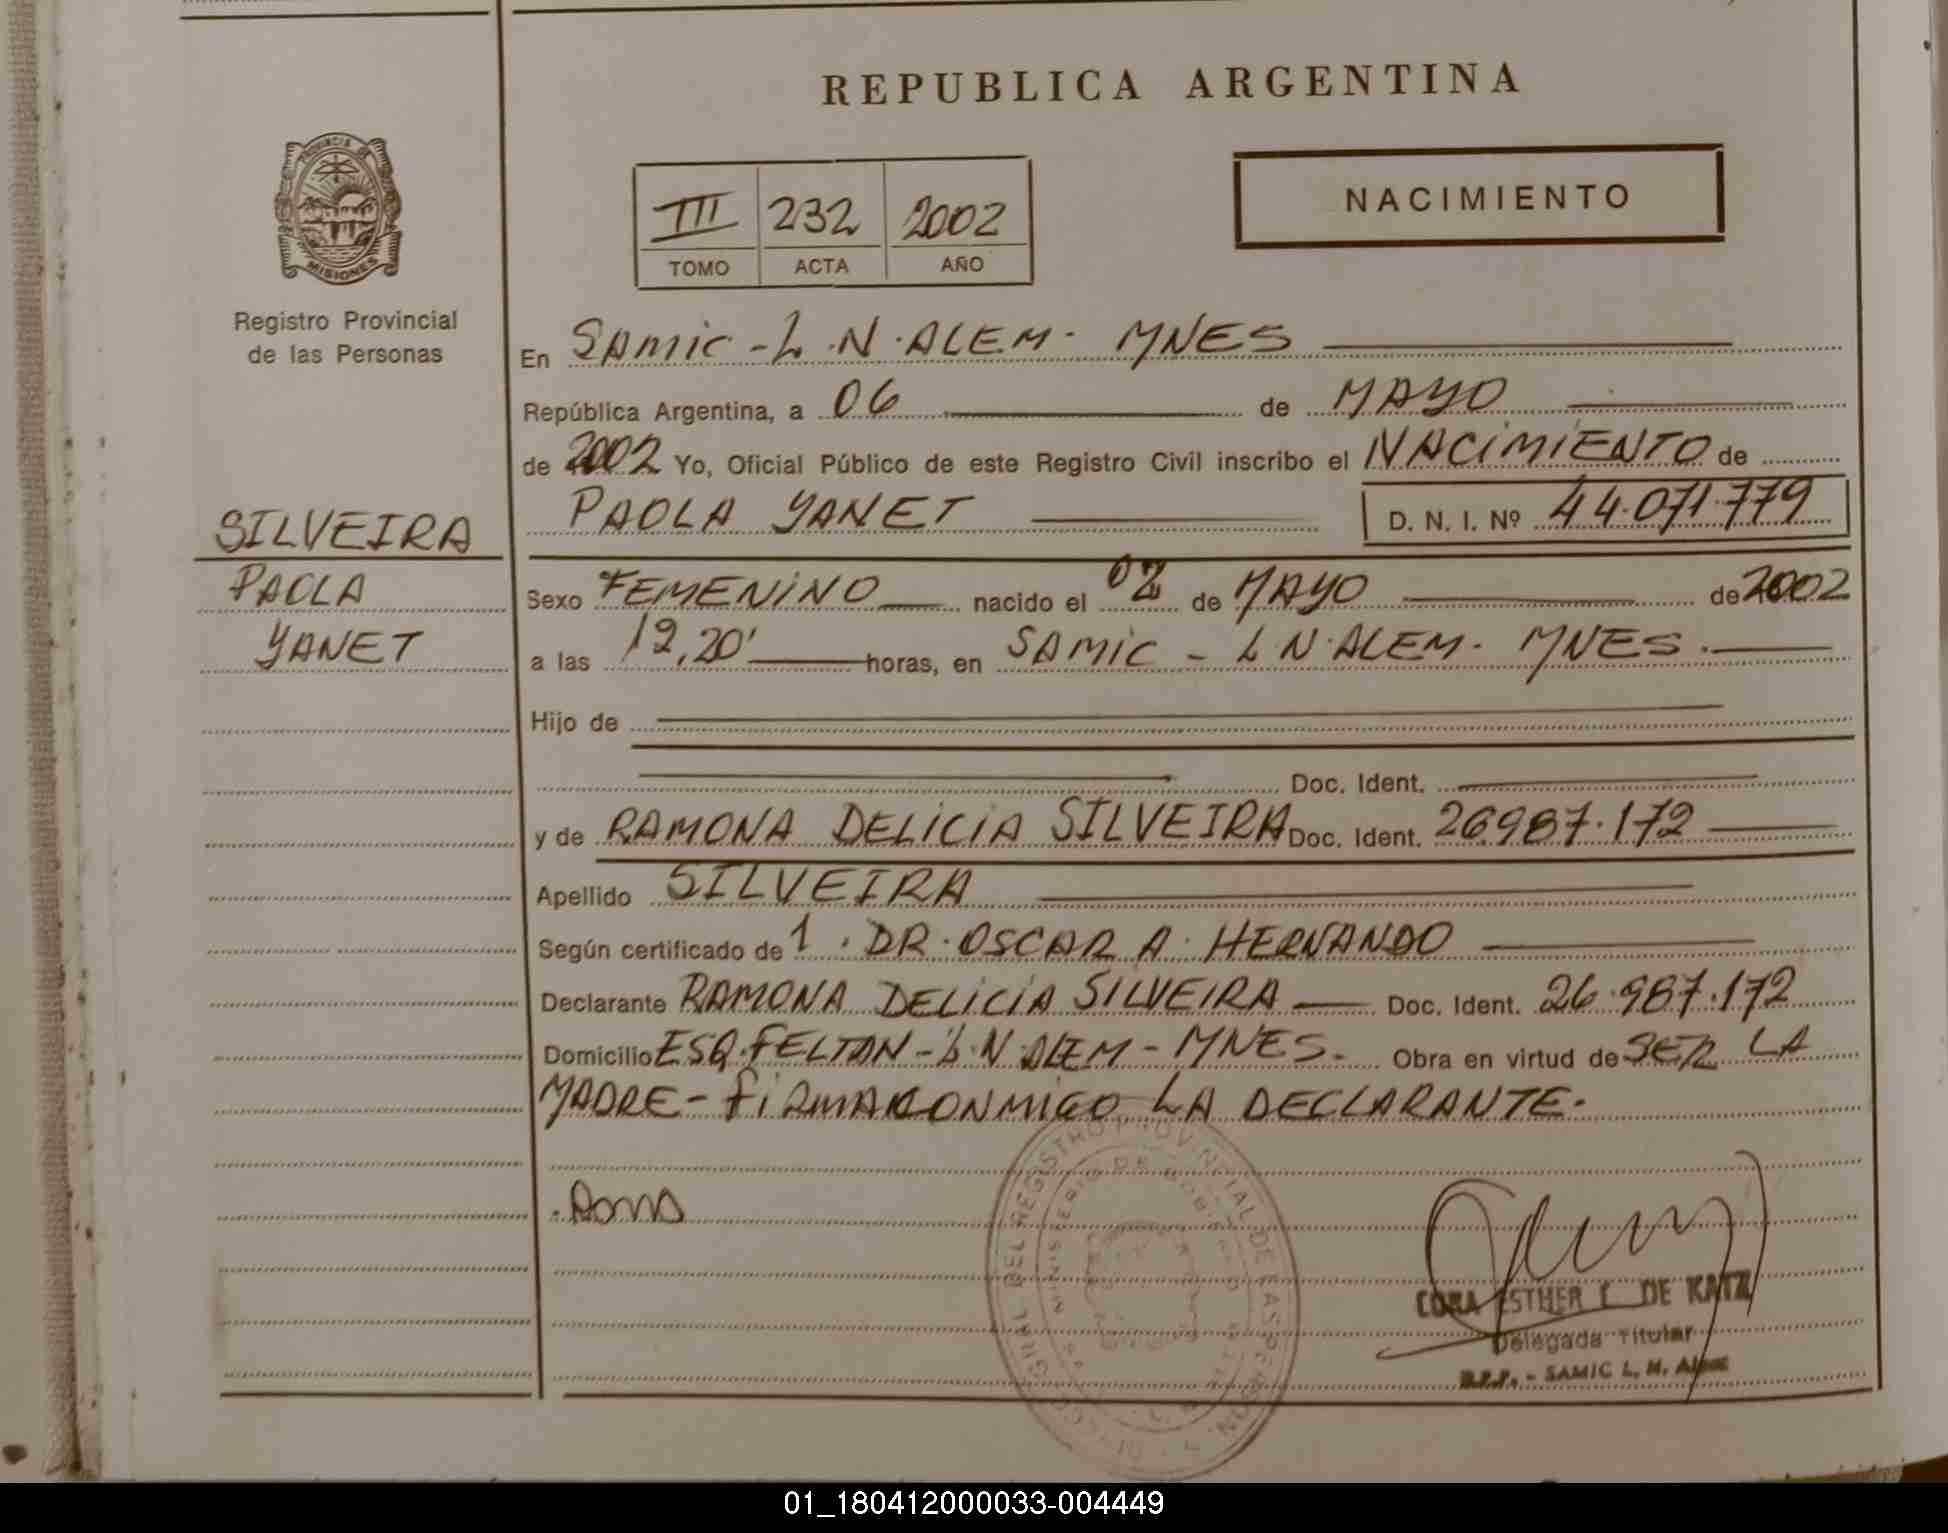 REPUBLICA ARGENTINA
PROVINCIA DE
MISIONES
Registro Provincial
de las Personas
III 232 2002
TOMO ACTA AÑO
NACIMIENTO
En SAMIC - L.N. ALEM - MNES
República Argentina, a 06 de MAYO
de 2002 Yo, Oficial Público de este Registro Civil inscribo el NACIMIENTO de
PAOLA YANET D. N. I. Nº 44.071.779
SILVEIRA
PAOLA
YANET
Sexo FEMENINO nacido el 02 de MAYO de 2002
a las 12,20' horas, en SAMIC - L N. ALEM - MNES.
Hijo de
Doc. Ident.
y de RAMONA DELICIA SILVEIRA Doc. Ident. 26987.172
Apellido SILVEIRA
Según certificado de 1. DR. OSCAR A. HERNANDO
Declarante RAMONA DELICIA SILVEIRA Doc. Ident. 26.987.172
Domicilio ESQ. FELTAN - L.N. ALEM - MNES. Obra en virtud de SER LA
MADRE - FIRMA CONMIGO LA DECLARANTE.
DEL REGISTRO PROVINCIAL DE LAS PERSONAS
MINISTERIO DE GOBIERNO
CORA ESTHER L. DE KATZ
Delegada Titular
R.P.P. - SAMIC L. N. Alem
01_180412000033-004449